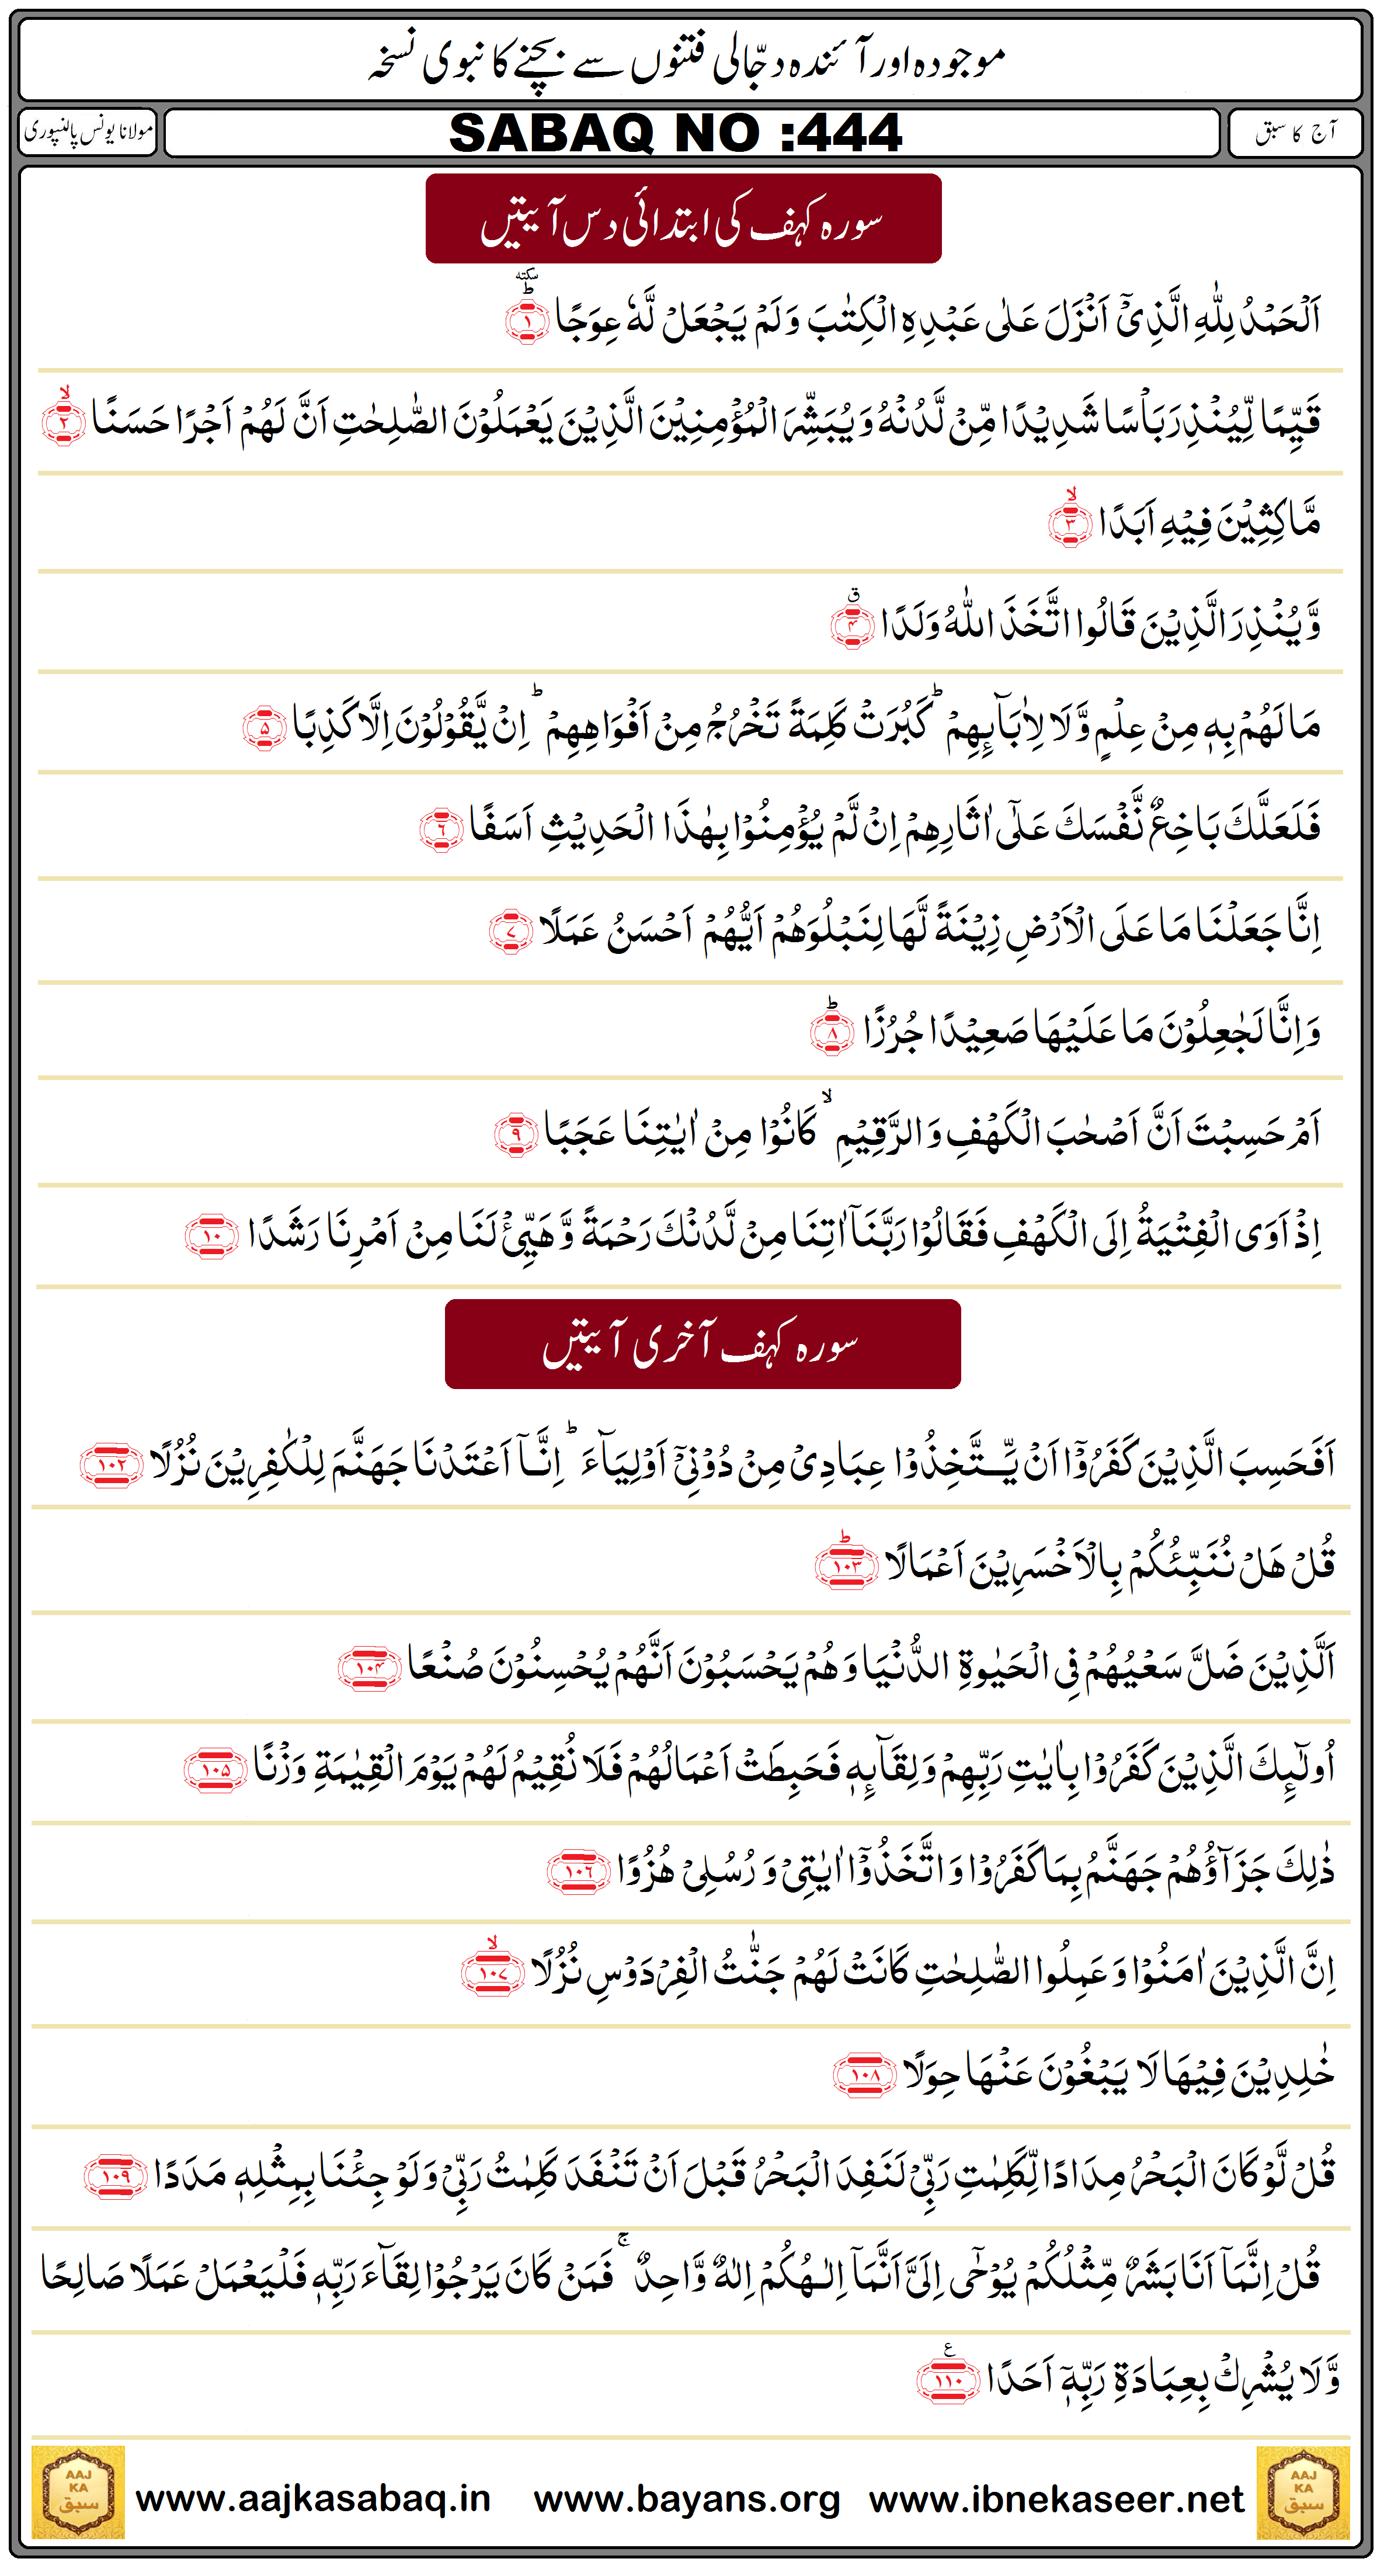 موجودہ اور آئندہ دجّالی فتنوں سے بچنے کا نبوی نسخہ
آج کا سبق
SABAQ NO :444
مولانا یونس پالنپوری
سورہ کہف کی ابتدائی دس آیتیں
اَلْحَمْدُ لِلّٰهِ الَّذِیْۤ اَنْزَلَ عَلٰی عَبْدِهِ الْكِتٰبَ وَلَمْ یَجْعَلْ لَّهٗ عِوَجًا ؕ سکتہ ۱
قَیِّمًا لِّیُنْذِرَ بَاْسًا شَدِیْدًا مِّنْ لَّدُنْهُ وَیُبَشِّرَ الْمُؤْمِنِیْنَ الَّذِیْنَ یَعْمَلُوْنَ الصّٰلِحٰتِ اَنَّ لَهُمْ اَجْرًا حَسَنًا ۙ ۲
مَّاكِثِیْنَ فِیْهِ اَبَدًا ۙ ۳
وَّیُنْذِرَ الَّذِیْنَ قَالُوا اتَّخَذَ اللّٰهُ وَلَدًا ق ۴
مَا لَهُمْ بِهٖ مِنْ عِلْمٍ وَّلَا لِاٰبَآىِٕهِمْ ؕ كَبُرَتْ كَلِمَةً تَخْرُجُ مِنْ اَفْوَاهِهِمْ ؕ اِنْ یَّقُوْلُوْنَ اِلَّا كَذِبًا ۵
فَلَعَلَّكَ بَاخِعٌ نَّفْسَكَ عَلٰۤی اٰثَارِهِمْ اِنْ لَّمْ یُؤْمِنُوْا بِهٰذَا الْحَدِیْثِ اَسَفًا ٦
اِنَّا جَعَلْنَا مَا عَلَی الْاَرْضِ زِیْنَةً لَّهَا لِنَبْلُوَهُمْ اَیُّهُمْ اَحْسَنُ عَمَلًا ۷
وَاِنَّا لَجٰعِلُوْنَ مَا عَلَیْهَا صَعِیْدًا جُرُزًا ؕ ۸
اَمْ حَسِبْتَ اَنَّ اَصْحٰبَ الْكَهْفِ وَالرَّقِیْمِ ۙ كَانُوْا مِنْ اٰیٰتِنَا عَجَبًا ۹
اِذْ اَوَی الْفِتْیَةُ اِلَی الْكَهْفِ فَقَالُوْا رَبَّنَاۤ اٰتِنَا مِنْ لَّدُنْكَ رَحْمَةً وَّهَیِّئْ لَنَا مِنْ اَمْرِنَا رَشَدًا ۱۰
سورہ کہف آخری آیتیں
اَفَحَسِبَ الَّذِیْنَ كَفَرُوْۤا اَنْ یَّتَّخِذُوْا عِبَادِیْ مِنْ دُوْنِیْۤ اَوْلِیَآءَ ؕ اِنَّاۤ اَعْتَدْنَا جَهَنَّمَ لِلْكٰفِرِیْنَ نُزُلًا ۱۰۲
قُلْ هَلْ نُنَبِّئُكُمْ بِالْاَخْسَرِیْنَ اَعْمَالًا ؕ ۱۰۳
اَلَّذِیْنَ ضَلَّ سَعْیُهُمْ فِی الْحَیٰوةِ الدُّنْیَا وَهُمْ یَحْسَبُوْنَ اَنَّهُمْ یُحْسِنُوْنَ صُنْعًا ۱۰۴
اُولٰٓىِٕكَ الَّذِیْنَ كَفَرُوْا بِاٰیٰتِ رَبِّهِمْ وَلِقَآىِٕهٖ فَحَبِطَتْ اَعْمَالُهُمْ فَلَا نُقِیْمُ لَهُمْ یَوْمَ الْقِیٰمَةِ وَزْنًا ۱۰۵
ذٰلِكَ جَزَآؤُهُمْ جَهَنَّمُ بِمَا كَفَرُوْا وَاتَّخَذُوْۤا اٰیٰتِیْ وَرُسُلِیْ هُزُوًا ۱۰٦
اِنَّ الَّذِیْنَ اٰمَنُوْا وَعَمِلُوا الصّٰلِحٰتِ كَانَتْ لَهُمْ جَنّٰتُ الْفِرْدَوْسِ نُزُلًا ۙ ۱۰۷
خٰلِدِیْنَ فِیْهَا لَا یَبْغُوْنَ عَنْهَا حِوَلًا ۱۰۸
قُلْ لَّوْ كَانَ الْبَحْرُ مِدَادًا لِّكَلِمٰتِ رَبِّیْ لَنَفِدَ الْبَحْرُ قَبْلَ اَنْ تَنْفَدَ كَلِمٰتُ رَبِّیْ وَلَوْ جِئْنَا بِمِثْلِهٖ مَدَدًا ۱۰۹
قُلْ اِنَّمَاۤ اَنَا بَشَرٌ مِّثْلُكُمْ یُوْحٰۤی اِلَیَّ اَنَّمَاۤ اِلٰـهُكُمْ اِلٰهٌ وَّاحِدٌ ۚ فَمَنْ كَانَ یَرْجُوْا لِقَآءَ رَبِّهٖ فَلْیَعْمَلْ عَمَلًا صَالِحًا
وَّلَا یُشْرِكْ بِعِبَادَةِ رَبِّهٖۤ اَحَدًا ع ۱۱۰
AAJ
KA
سبق
www.aajkasabaq.in www.bayans.org www.ibnekaseer.net
AAJ
KA
سبق